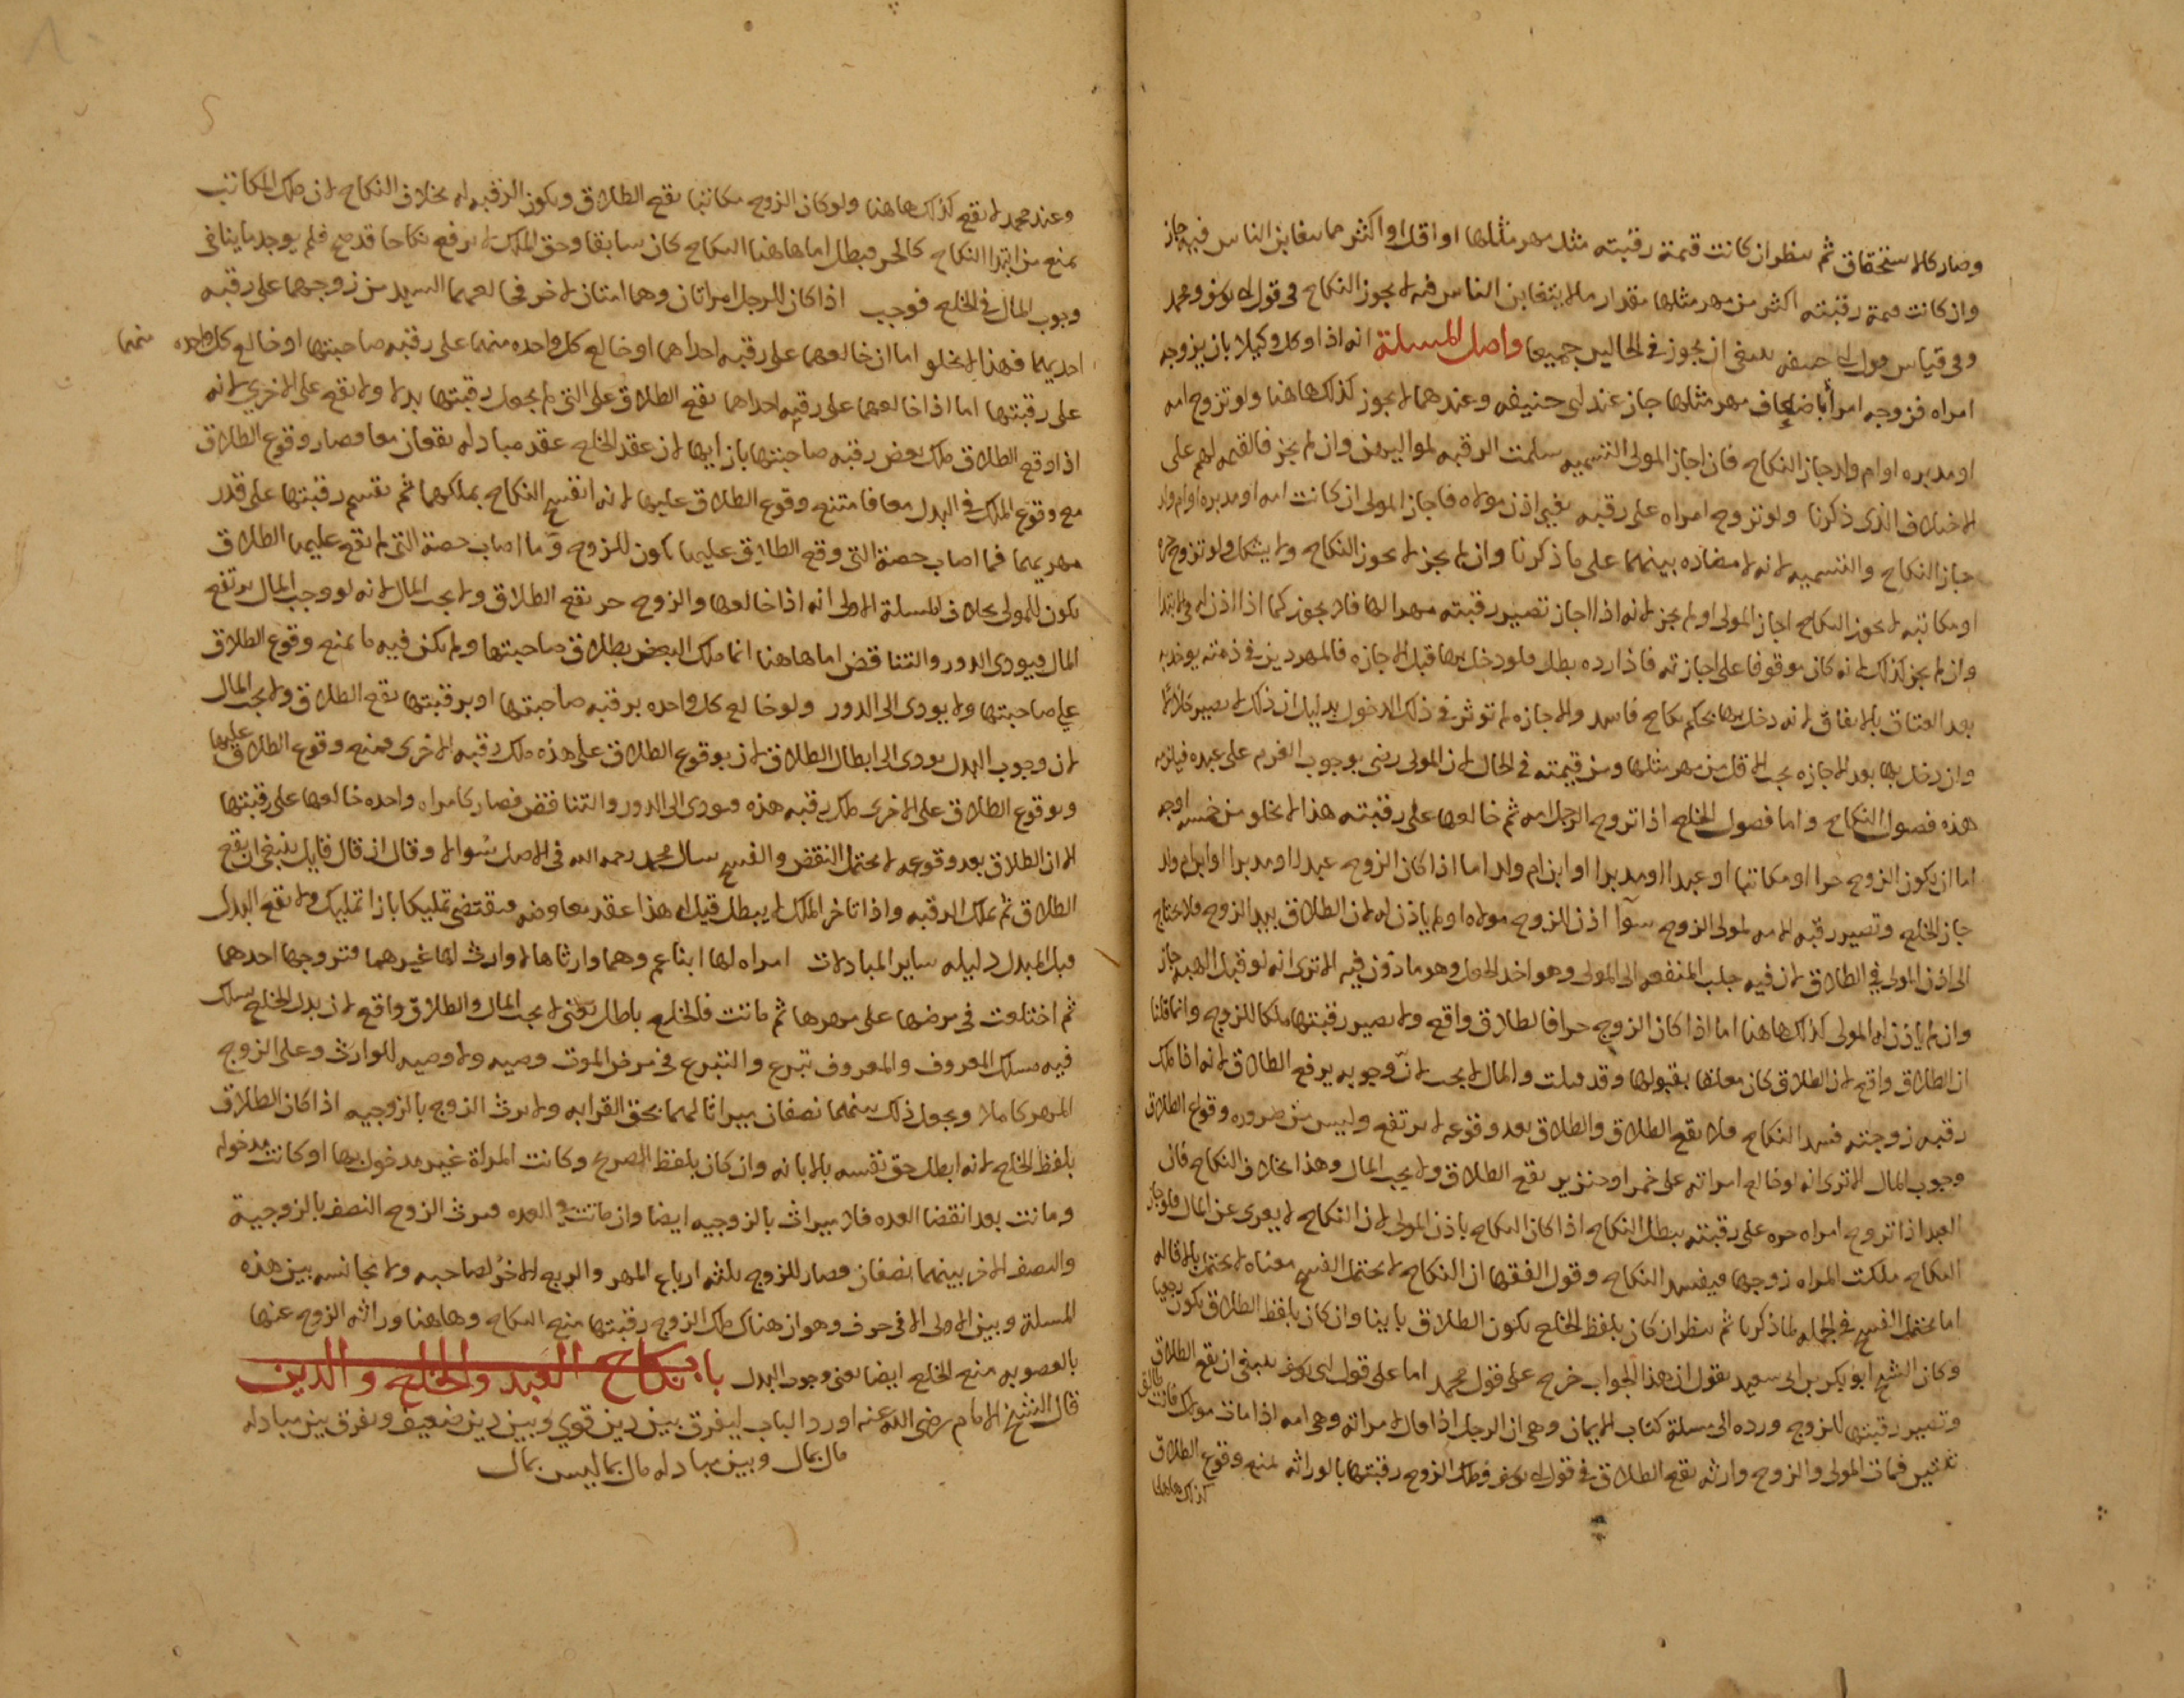 وصار كالاستحقاق ثم ينظر ان كانت قيمة رقبته مثل مهر مثلها او اقل او اكثر مما يتغابن الناس فيه جاز
وان كانت قيمة رقبته اكثر من مهر مثلها مقدار ما لا يتغابن الناس فيه لا يجوز النكاح في قول ابي يوسف ومحمد
وفي قياس قول ابي حنيفه ينبغي ان يجوز في الحالين جميعا واصل المسلة انه اذا وكل وكيلا بان يزوجه
امراه فزوجه امرأة باضعاف مهر مثلها جاز عند ابي حنيفه وعندهما لا يجوز كذلك هاهنا ولو تزوج امه
او مدبره او ام ولد جاز النكاح فان اجاز المولى التسميه سلمت الرقبه لمواليهن وان لم يجز فالقيمه لهم على
الاختلاف الذي ذكرنا ولو تزوج امراه على رقبه بغير اذن مولاه فاجاز المولى ان كانت امه او مدبره او ام ولد
جاز النكاح والتسميه لانه لا مضاده بينهما على ما ذكرنا وان لم يجز لا يجوز النكاح ولا يشكل ولو تزوج حره
او مكاتبه لا يجوز النكاح اجاز المولى او لم يجز لانه اذا اجاز تصير رقبته مهرا لها فلا يجوز كما اذا اذن له في الابتدا
وان لم يجز كذلك لانه كان موقوفا على اجازته فاذا رده بطل فلو دخل بها قبل الاجازه فالمهر دين في ذمته يوخذ به
بعد العتاق بالاتفاق لانه دخل بها بحكم نكاح فاسد والاجازه لم توثر في ذلك الدخول بدليل ان ذلك لا يصير حلالا
وان دخل بها بعد الاجازه يجب الاقل من مهر مثلها ومن قيمته في الحال لان المولى رضي بوجوب الغرم على عبده فيلزمه
هذه فصول النكاح واما فصول الخلع اذا تزوج الرجل امه ثم خالعها على رقبته هذا لا يخلو من خمسه اوجه
اما ان يكون الزوج حرا او مكاتبا او عبدا او مدبرا او ابن ام ولد اما اذا كان الزوج عبدا او مدبرا او ابن ام ولد
جاز الخلع وتصير رقبه الامه لمولى الزوج سوآ اذن للزوج مولاه او لم ياذن له لان الطلاق بيد الزوج فلا يحتاج
الى اذن المولى في الطلاق لان فيه جلب المنفعه الى المولى وهو اخذ الجعل وهو ماذون فيه الا ترى انه لو قبل الهبه جاز
وان لم ياذن له المولى كذلك هاهنا اما اذا كان الزوج حرا فالطلاق واقع ولا تصير رقبتها ملكا للزوج وانما قلنا
ان الطلاق واقع لان الطلاق كان معلقا بقبولها وقد قبلت والمال لا يجب لانّ وجوبه يرفع الطلاق لانه اذا ملك
رقبه زوجته فسد النكاح فلا يقع الطلاق والطلاق بعد وقوعه لا يرتفع وليس من ضروره وقوع الطلاق
وجوب المال الا ترى انه لو خالع امراته على خمر او خنزير يقع الطلاق ولا يجب المال وهذا بخلاف النكاح فان
العبد اذا تزوج امراه حره على رقبته يبطل النكاح اذا كان النكاح باذن المولى لان النكاح لا يعرى عن المال فلو جاز
النكاح ملكت المراه زوجها فيفسد النكاح وقول الفقها ان النكاح لا يحتمل الفسخ معناه لا يحتمل بالاقاله
اما يحتمل الفسخ في الجمله لما ذكرنا ثم ينظر ان كان بلفظ الخلع يكون الطلاق باينا وان كان بلفظ الطلاق يكون رجعيا
وكان الشيخ ابو بكر بن ابي سعيد يقول ان هذا الجواب خرج على قول محمد اما على قول ابي يوسف ينبغي ان يقع الطلاق
وتصير رقبتها للزوج ورده الى مسلة كتاب الايمان وهي ان الرجل اذا قال لامراته وهي امه اذا مات مولاك فانت طالق
ثنتين فمات المولى والزوج وارثه يقع الطلاق في قول ابي يوسف وملك الزوج رقبتها بالوراثه لم يمنع وقوع الطلاق
كذلك هاهنا
وعند محمد لا يقع كذلك هاهنا ولو كان الزوج مكاتبا يقع الطلاق ويكون الرقبه له بخلاف النكاح لان ملك المكاتب
يمنع من ابتدا النكاح كالحر فبطل اما هاهنا النكاح كان سابقا وحق الملك لا يرفع نكاحا قد صح فلم يوجد ما ينافي
وجوب المال في الخلع فوجب اذا كان للرجل امراتان وهما امتان لاخر فخالعهما السيد من زوجهما على رقبه
احديهما فهذا لا يخلو اما ان خالعهما على رقبه احداهما او خالع كل واحده منهما على رقبه صاحبتها او خالع كل واحده منهما
على رقبتها اما اذا خالعهما على رقبه احداهما يقع الطلاق على التي لم يجعل رقبتها بدلا ولا يقع على الاخرى لانه
اذا وقع الطلاق ملك بعض رقبه صاحبتها بازايها لان عقد الخلع عقد مبادله يقعان معا فصار وقوع الطلاق
مع وقوع الملك في البدل معا فامتنع وقوع الطلاق عليها لانه انفسخ النكاح بملكهما ثم يقسم رقبتها على قدر
مهريهما فما اصاب حصة التي وقع الطلاق عليها يكون للزوج وما اصاب حصة التي لم يقع عليها الطلاق
يكون للمولى بخلاف المسلة الاولى انه اذا خالعها والزوج حر يقع الطلاق ولا يجب المال لانه لو وجب المال يرتفع
المال فيودى الدور والتناقض اما هاهنا انما ملك البعض بطلاق صاحبتها ولم يكن فيه ما يمنع وقوع الطلاق
على صاحبتها ولا يودى الى الدور ولو خالع كل واحده برقبه صاحبتها او برقبتها يقع الطلاق ولا يجب المال
لان وجوب البدل يودى الى ابطال الطلاق لان بوقوع الطلاق على هذه ملك رقبه الاخرى فمنع وقوع الطلاق عليها
وبوقوع الطلاق على الاخرى ملك رقبه هذه فيودى الى الدور والتناقض فصار كامراه واحده خالعها على رقبتها
الا ان الطلاق بعد وقوعه لا يحتمل النقض والفسخ سال محمد رحمه الله في الاصل سوالا وقال ان قال قايل ينبغي ان يقع
الطلاق ثم يملك الرقبه واذا تاخر الملك لا يبطل قيل له هذا عقد معاوضه فيقتضى تمليكا بازا تمليك ولا يقع البدل
قبل المبدل دليله ساير المبادلات امراه لها ابنا عم وهما وارثاها لا وارث لها غيرهما فتزوجها احدهما
ثم اختلعت في مرضها على مهرها ثم ماتت فالخلع باطل يعني لا يجب المال والطلاق واقع لان بدل الخلع يسلك
فيه مسلك المعروف والمعروف تبرع والتبرع في مرض الموت وصيه ولا وصيه للوارث وعلى الزوج
المهر كاملا ويجعل ذلك بينهما نصفان ميراثا لهما بحق القرابه ولا يرث الزوج بالزوجيه اذا كان الطلاق
بلفظ الخلع لانه ابطل حق نفسه بالابانه وان كان بلفظ الصريح وكانت المراة غير مدخول بها او كانت مدخوله
وماتت بعد انقضا العده فلا ميراث بالزوجيه ايضا وان ماتت في العده فيرث الزوج النصف بالزوجية
والنصف الاخر بينهما نصفان فصار للزوج ثلثه ارباع المهر والربع الاخر لصاحبه ولا مجانسه بين هذه
المسلة وبين الاولى الا في حرف وهو ان هناك ملك الزوج رقبتها منع النكاح وهاهنا وراثه الزوج عنها
بالعصوبه منع الخلع ايضا يعني وجوب البدل باب نكاح العبد والخلع والدين
قال الشيخ الامام رضي الله عنه اورد الباب ليفرق بين دين قوي وبين دين ضعيف ويفرق بين مبادله
مال بمال وبين مبادله مال بما ليس بمال